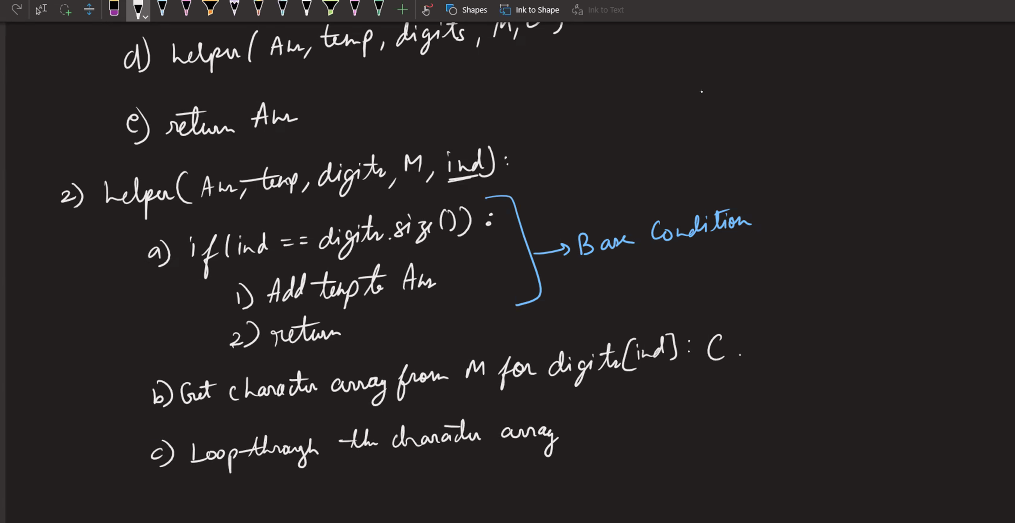 Shapes Ink to Shape Ink to Text
d) helper( Ans, temp, digits, M,
e) return Ans
2) helper( Ans, temp, digits, M, ind):
a) if(ind == digits.size()) :
Base Condition
1) Add temp to Ans
2) return
b) Get character array from M for digits[ind] : C.
c) Loop through the character array